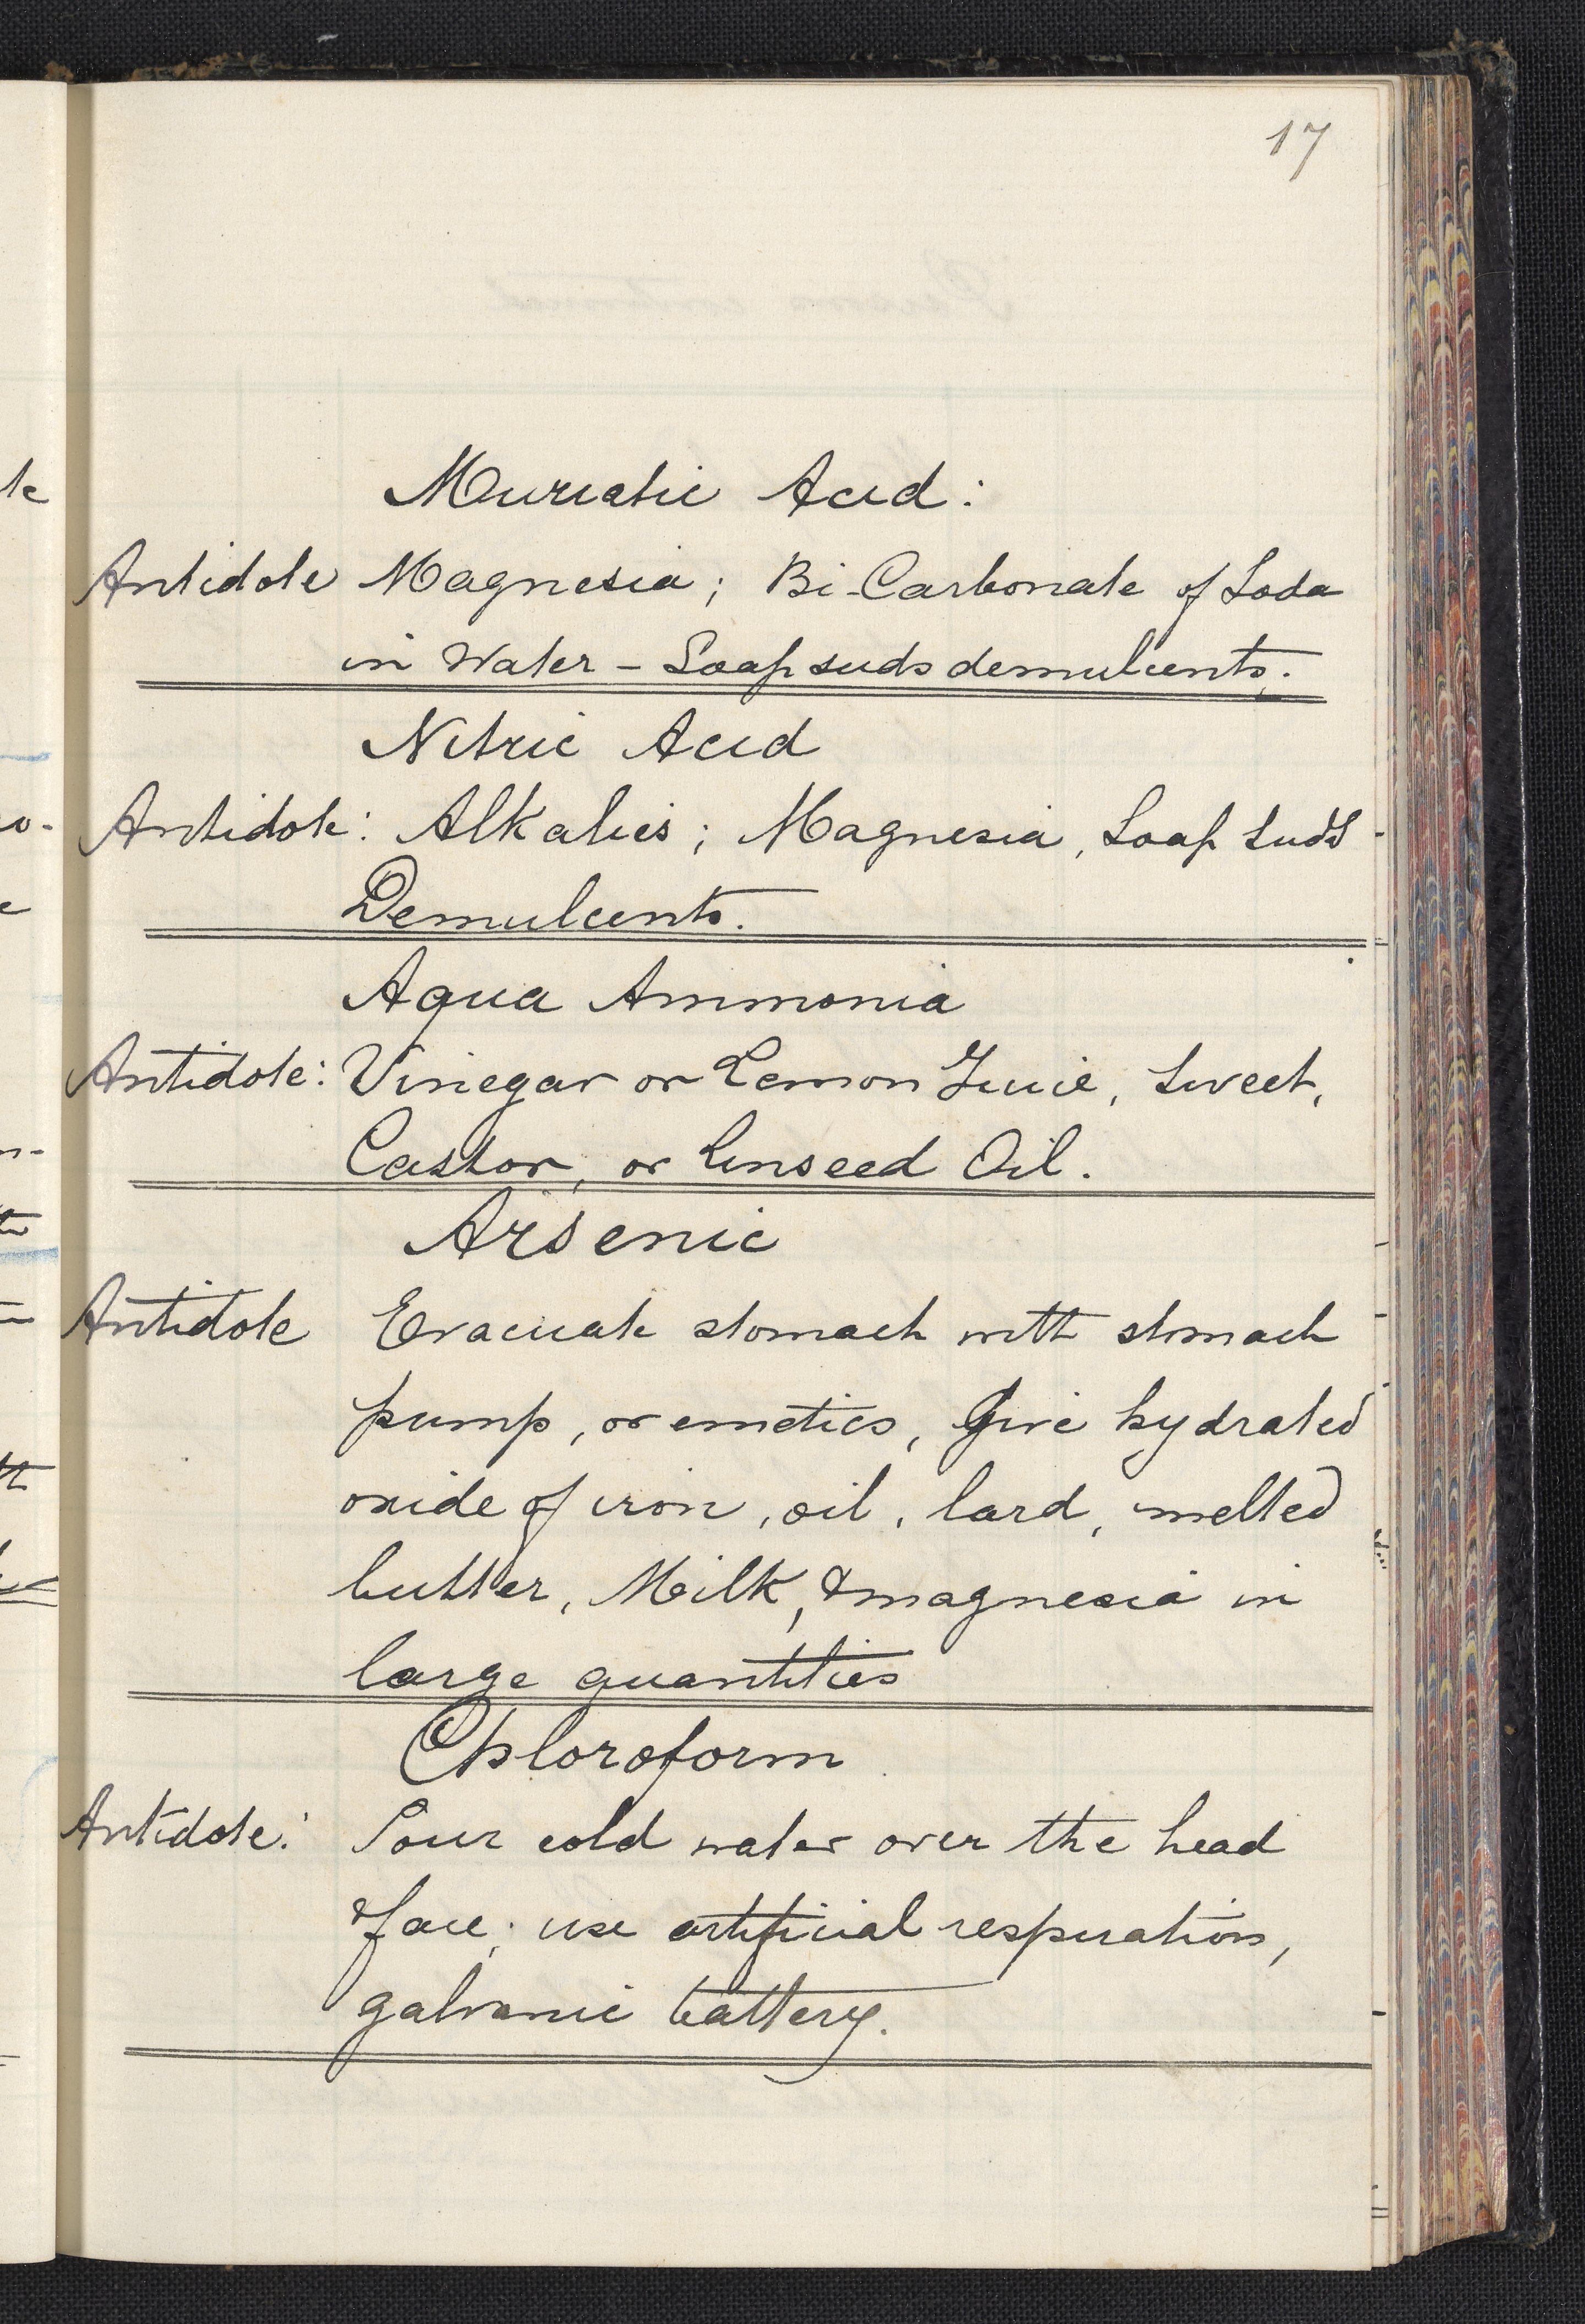 17
Muriatic Acid:
Antidote Magnesia; Bi-Carbonate of Soda
in Water - Soap suds demulcents.
Nitric Acid
Antidote: Alkalies; Magnesia, Soap Suds
Demulcents.
Aqua Ammonia
Antidote: Vinegar or Lemon Juice, Sweet,
Castor, or Linseed Oil.
Arsenic
Antidote Evacuate stomach with stomach
pump, or emetics, Give hydrated
oxide of iron, oil, lard, melted
butter, Milk, & magnesia in
large quantities
Chloroform
Antidote: Pour cold water over the head
& face; use artificial respiration,
galvanic battery.